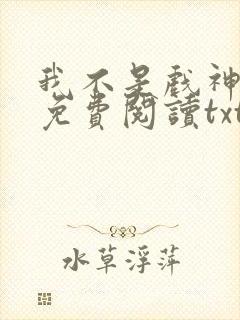 我不是戲神
免費閱讀txt
水草浮萍